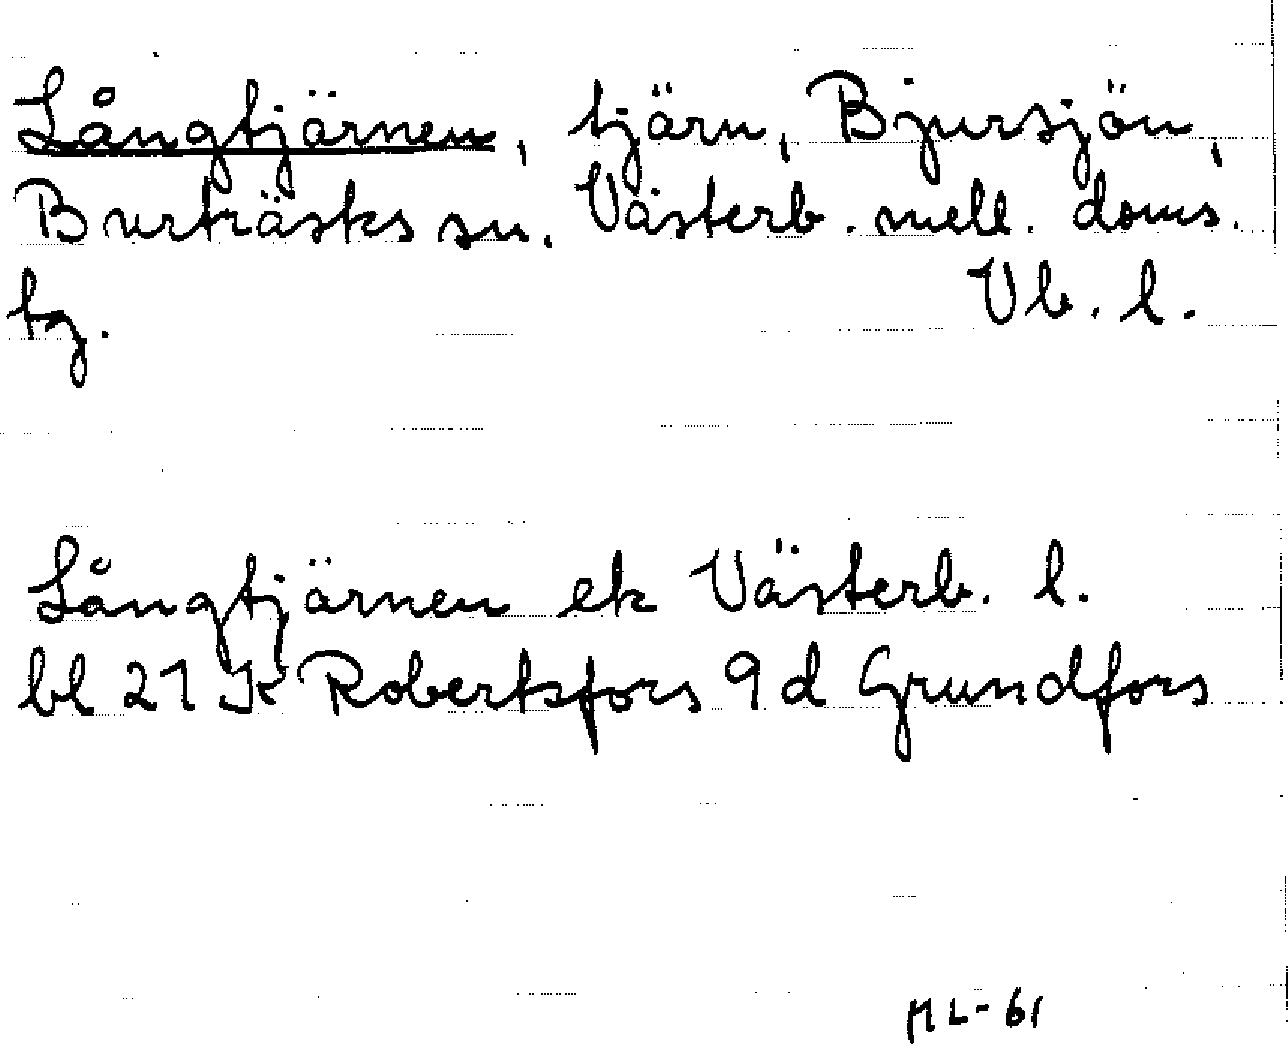 Långtjärnen, tjärn, Bjursjön,
Burträsks sn. Västerb. mell. doms.
tg. Vb. l.
Långtjärnen ek Västerb. l.
bl 21 K Robertsfors 9 d Grundfors
ML-61